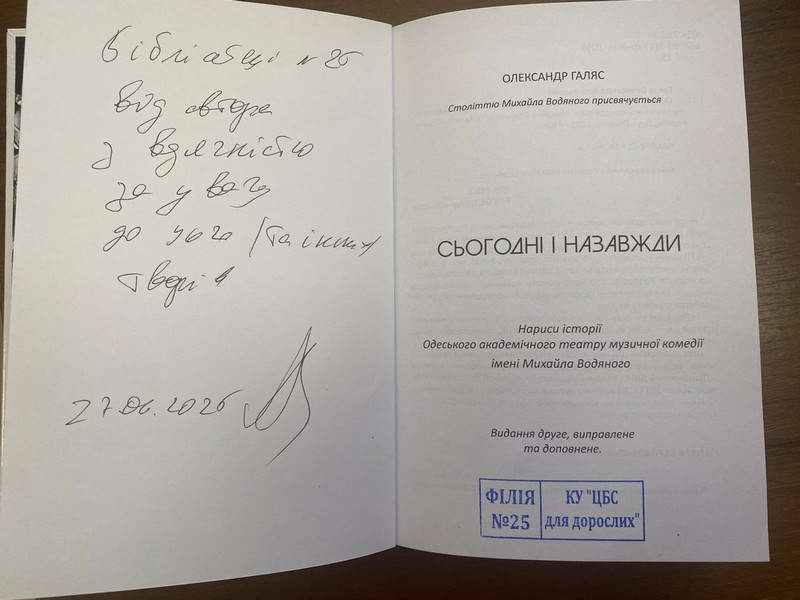 Бібліотеці №25
від автора
з вдячністю
за увагу
до цього (та інших)
творів
27.06.2025
ОЛЕКСАНДР ГАЛЯС
Століттю Михайла Водяного присвячується
СЬОГОДНІ І НАЗАВЖДИ
Нариси історії
Одеського академічного театру музичної комедії
імені Михайла Водяного
Видання друге, виправлене
та доповнене.
ФІЛІЯ КУ "ЦБС
№25 для дорослих"